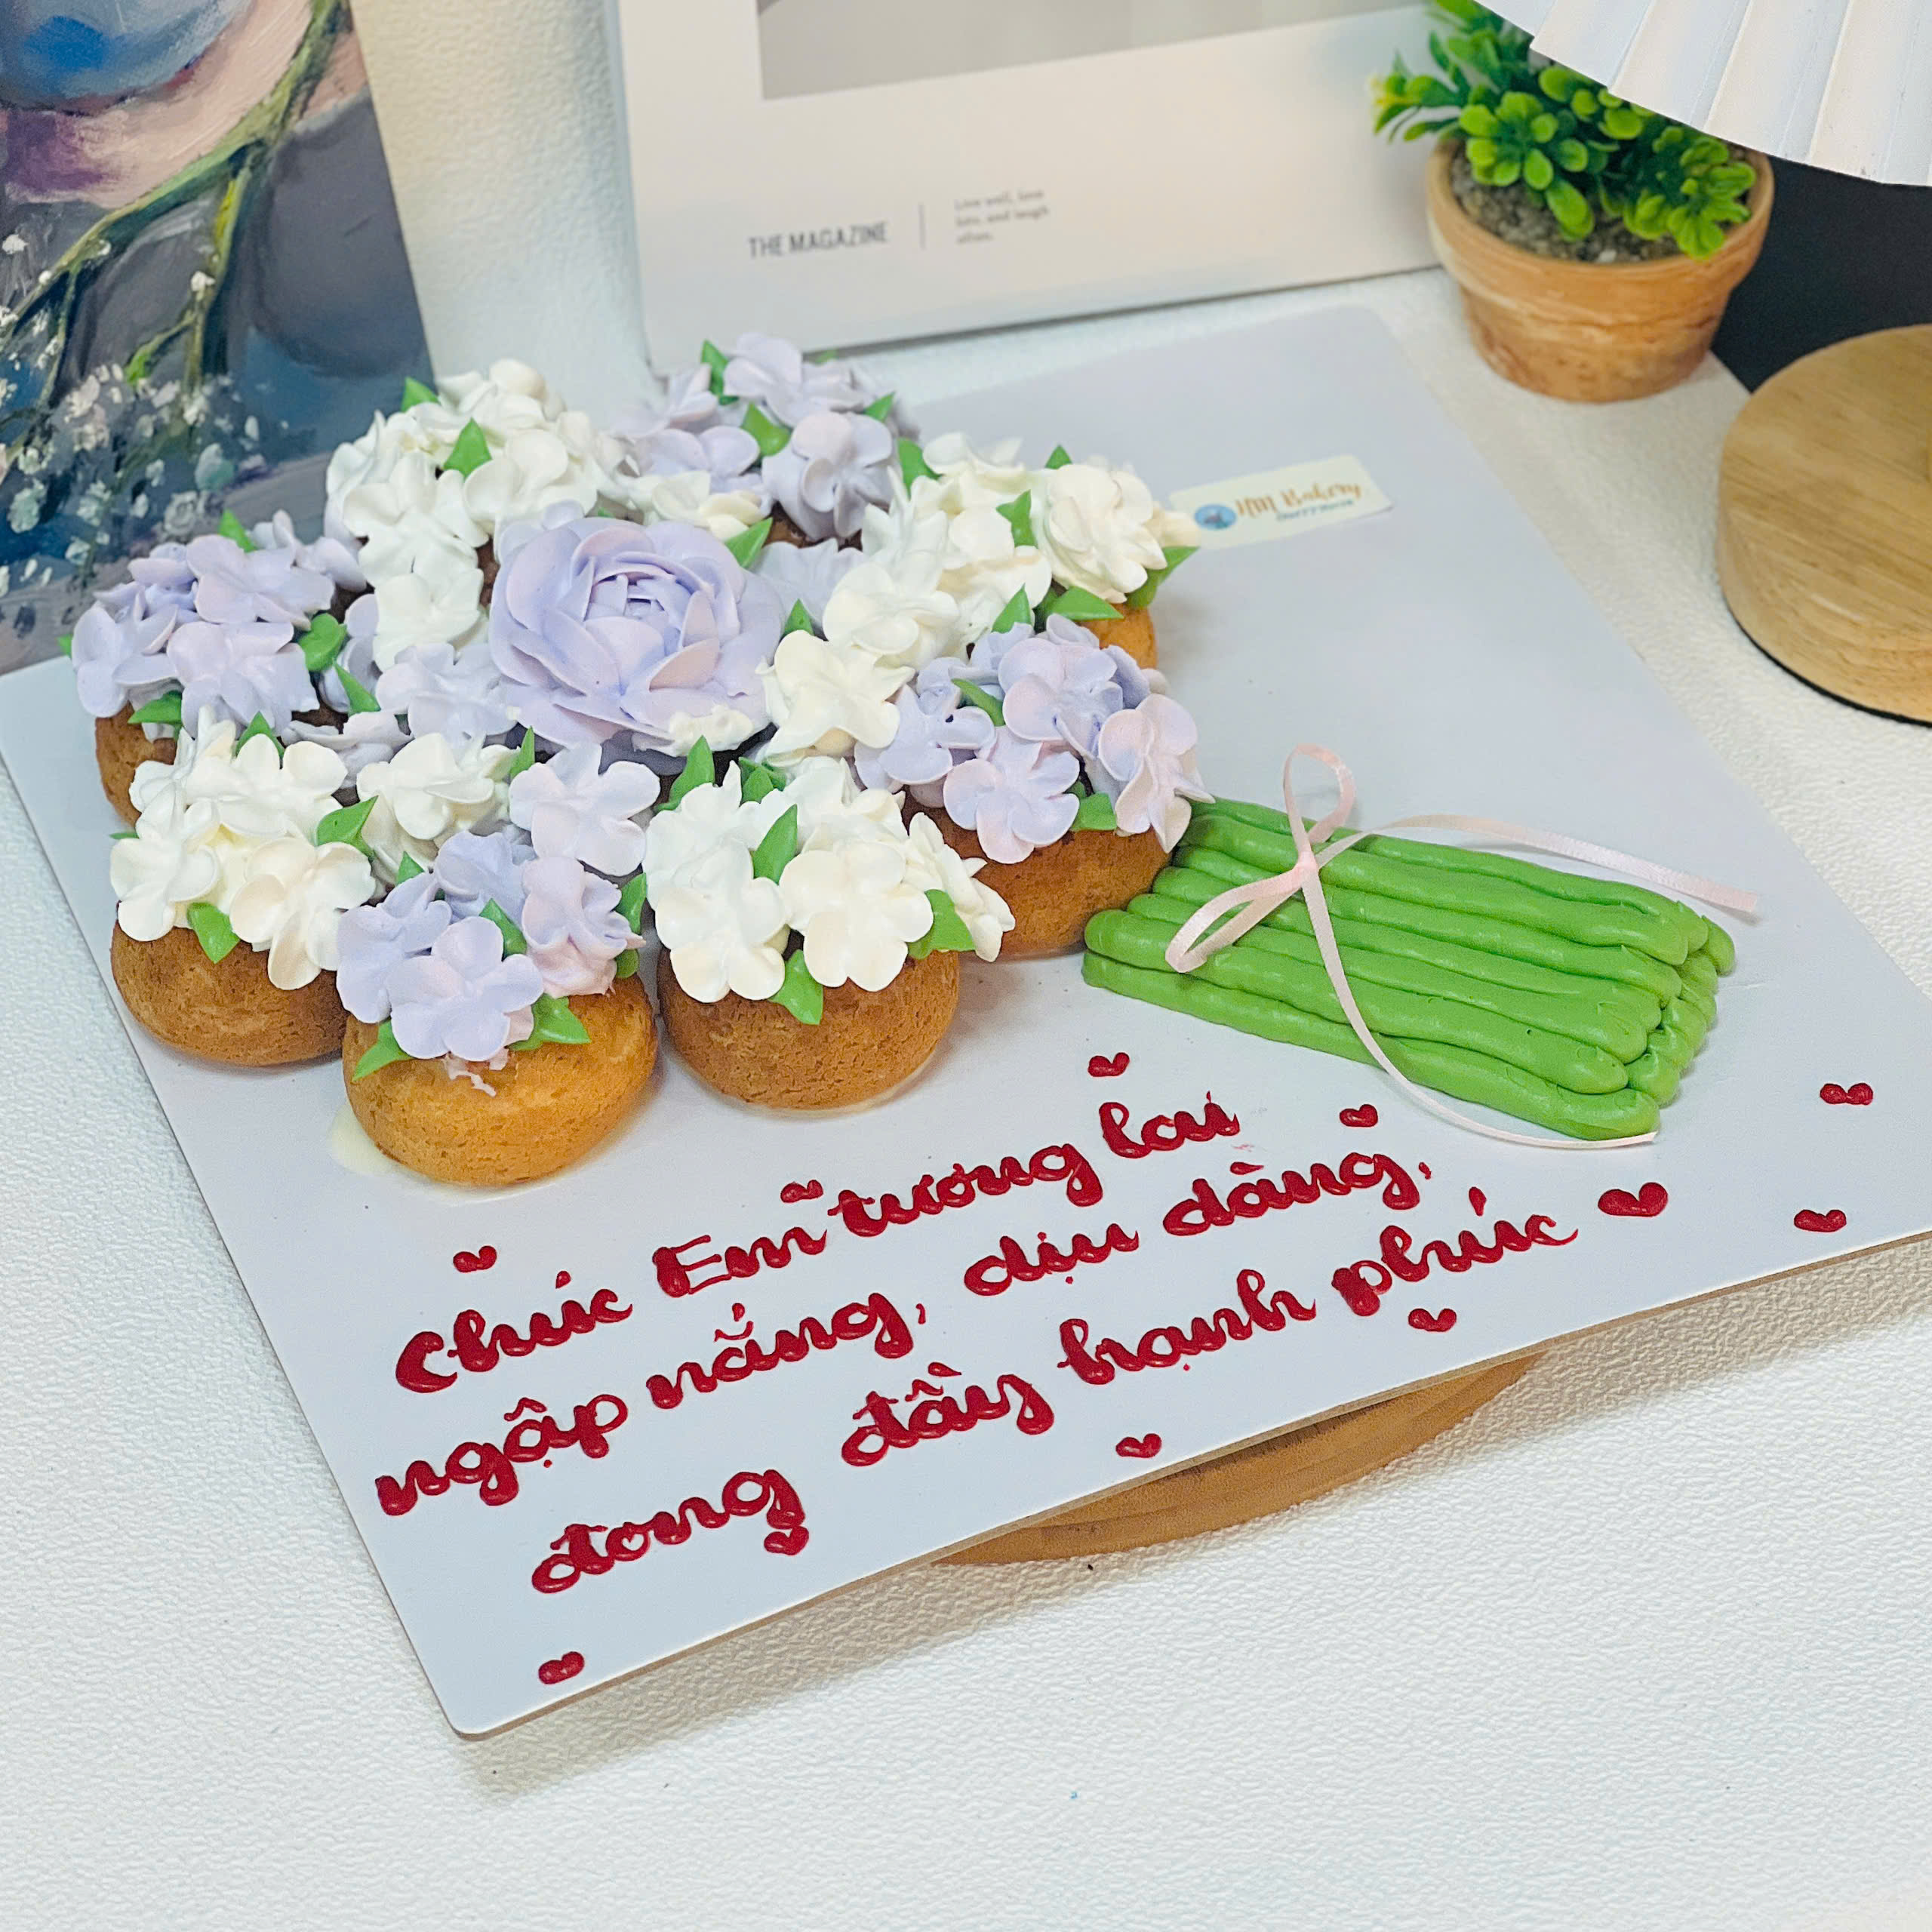 THE MAGAZINE
Live well, love
lots, and laugh
often.
HM Bakery
Chúc Em tương lai
ngập nắng, dịu dàng,
đong đầy hạnh phúc